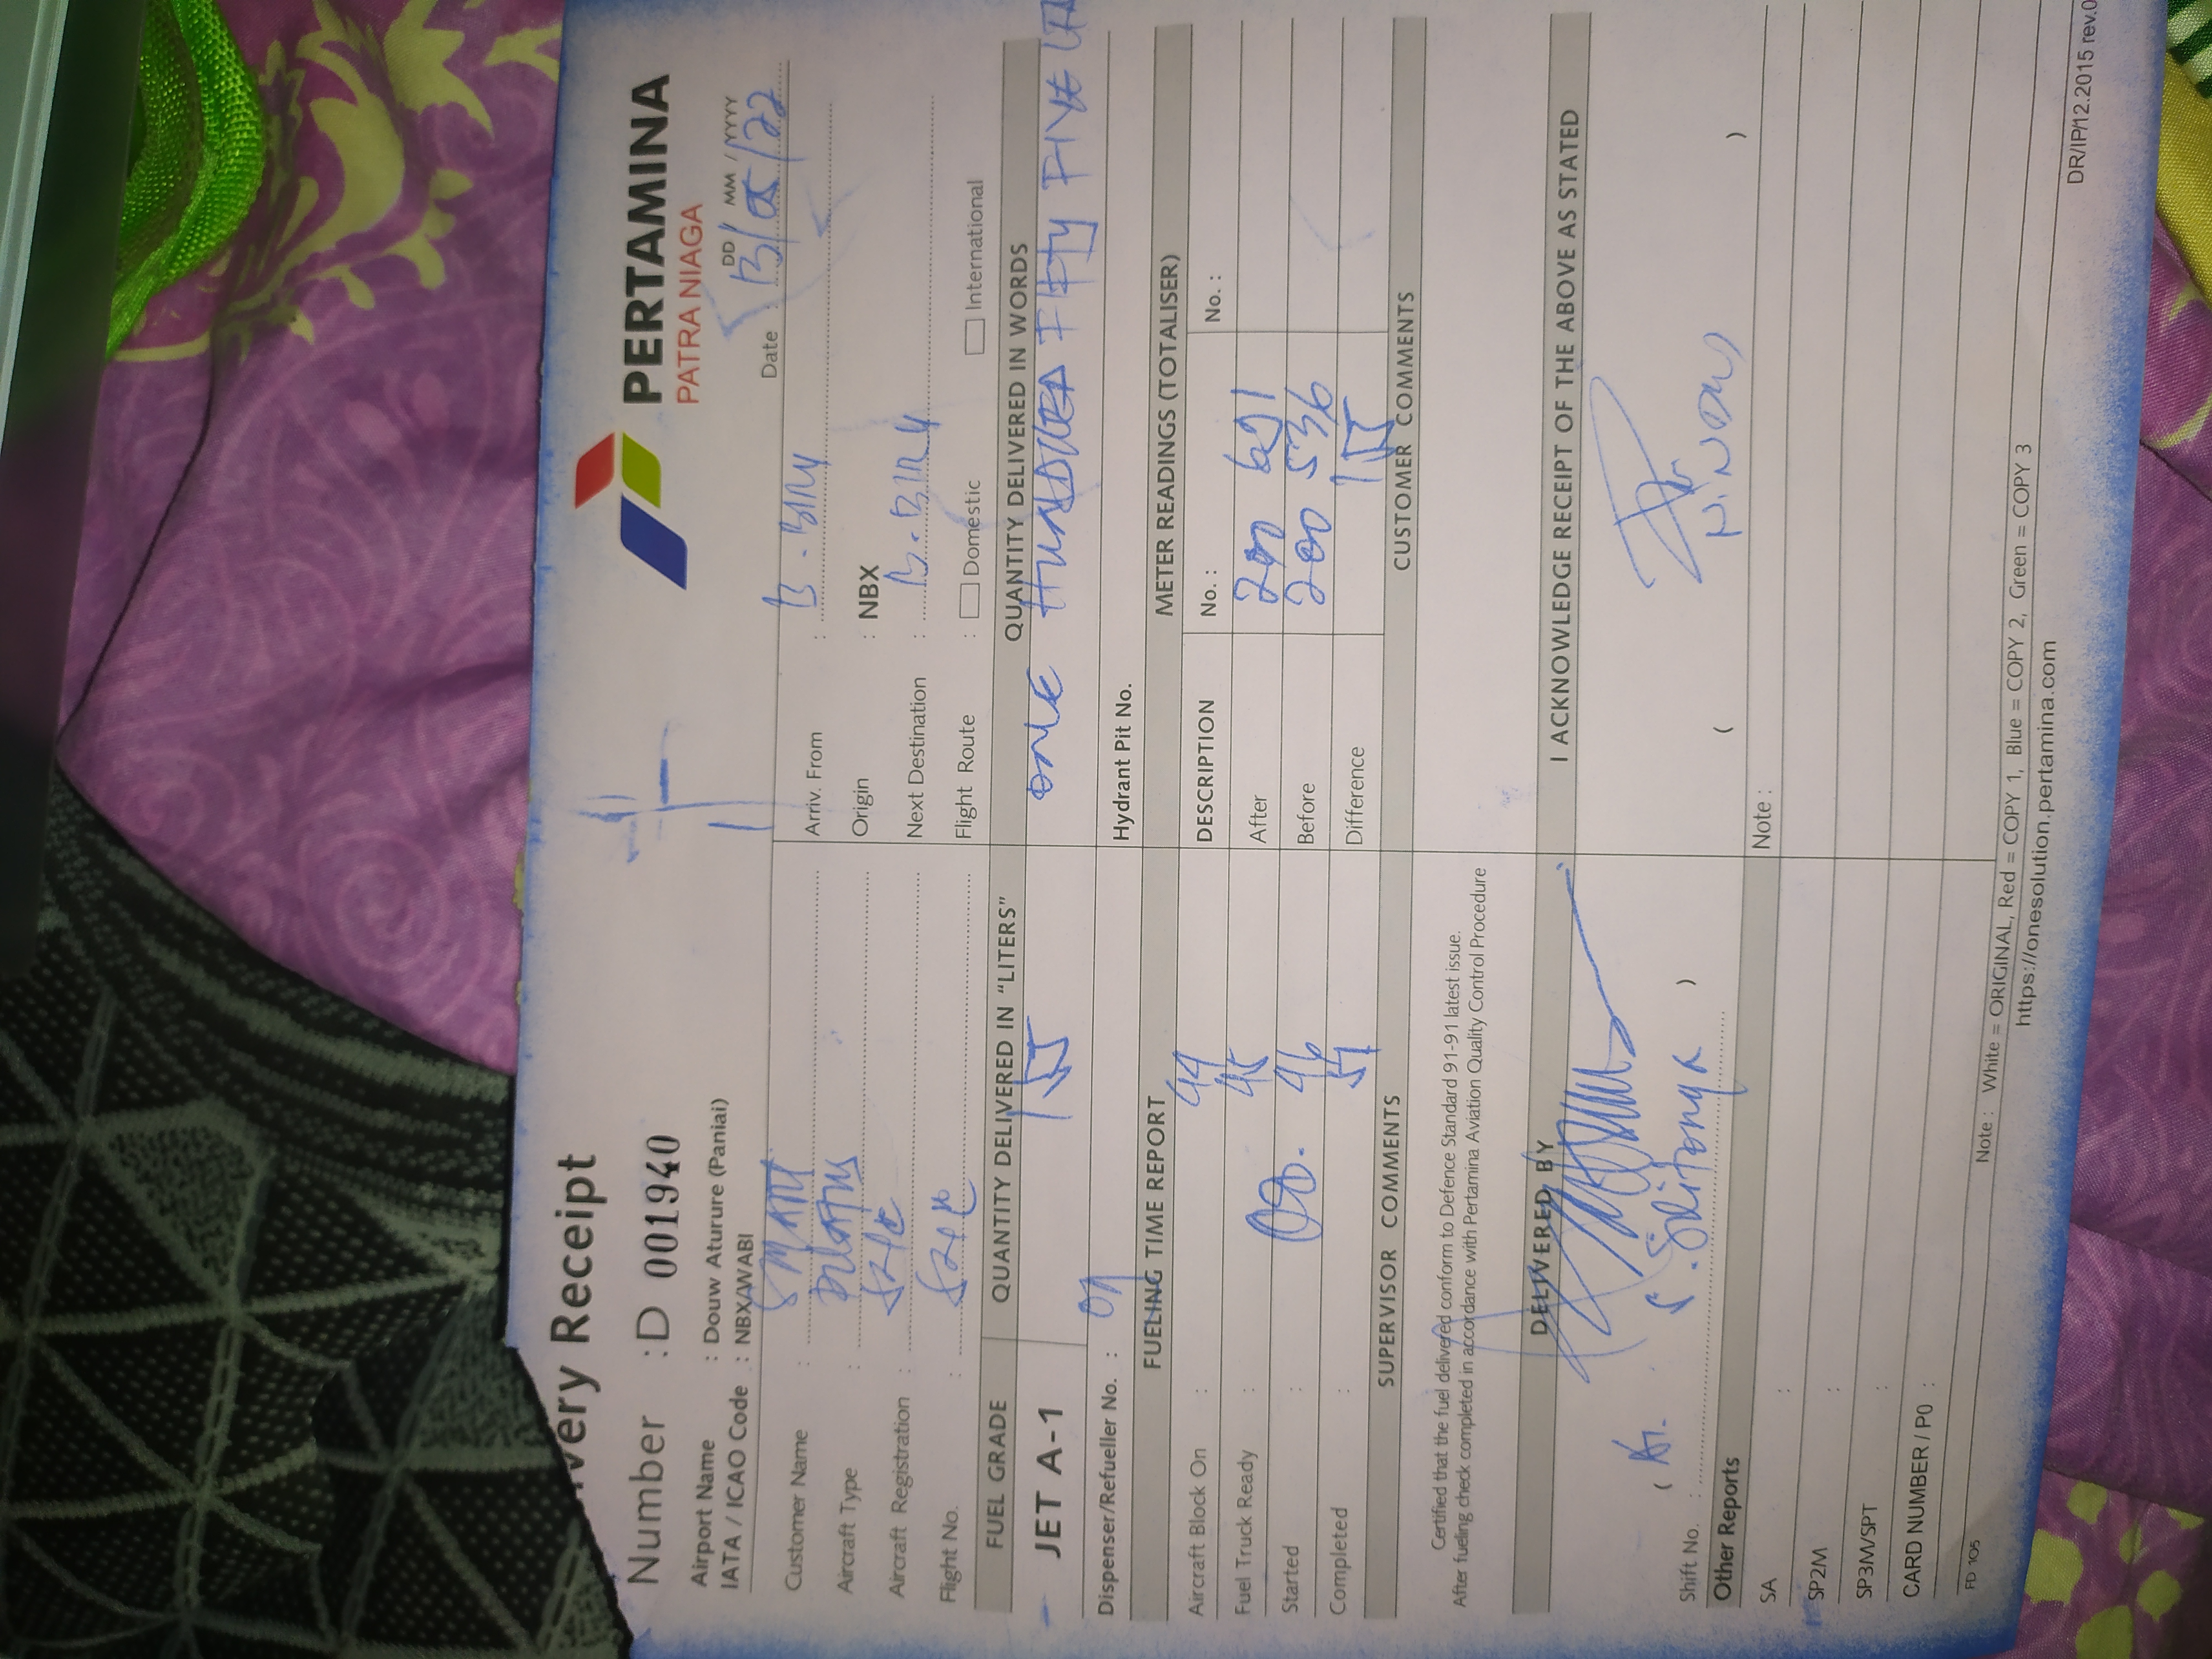 PERTAMINA
PATRA NIAGA
very Receipt
Number : D 001940
Airport Name : Douw Aturure (Paniai)
IATA / ICAO Code : NBX/WABI
DD / MM / YYYY
Date : 13/05/22
Customer Name : SMART
Aircraft Type : PILATUS
Aircraft Registration :
Flight No. :
Arriv. From :
Origin : NBX
Next Destination :
Flight Route : Domestic International
FUEL GRADE
QUANTITY DELIVERED IN “LITERS”
QUANTITY DELIVERED IN WORDS
JET A-1
155
ONE HUNDRED FIFTY FIVE
Dispenser/Refueller No. : 01
Hydrant Pit No.
FUELING TIME REPORT
METER READINGS (TOTALISER)
Aircraft Block On : 44
DESCRIPTION No. : No. :
Fuel Truck Ready : 45
After 200 691
Started : 46
Before 200 536
Completed : 51
Difference 155
SUPERVISOR COMMENTS
CUSTOMER COMMENTS
Certified that the fuel delivered conform to Defence Standard 91-91 latest issue.
After fueling check completed in accordance with Pertamina Aviation Quality Control Procedure
DELIVERED BY
I ACKNOWLEDGE RECEIPT OF THE ABOVE AS STATED
Shift No. :
Other Reports
Note :
SA :
SP2M :
SP3M/SPT :
CARD NUMBER / P0 :
FD 105
Note : White = ORIGINAL, Red = COPY 1, Blue = COPY 2, Green = COPY 3
https://onesolution.pertamina.com
DR/IP/12.2015 rev.0